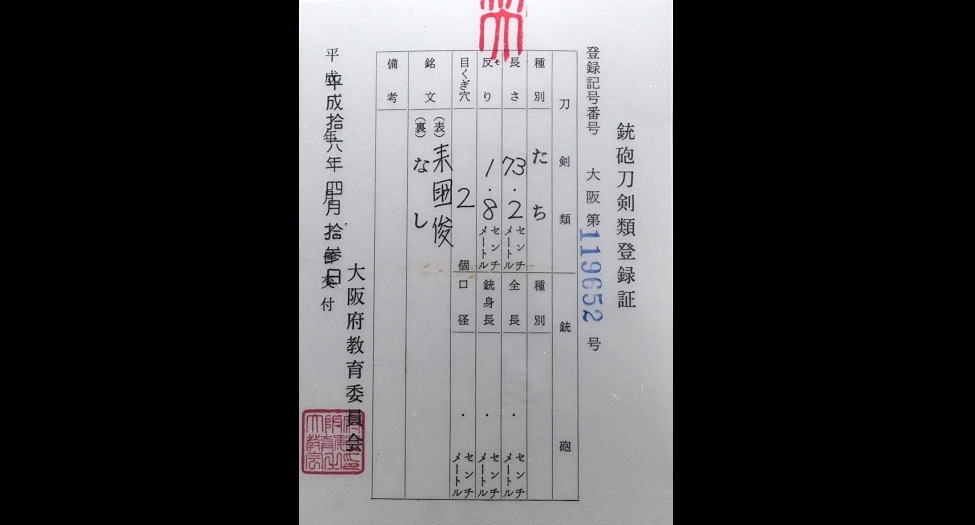 銃砲刀剣類登録証
登録記号番号 大阪第119652号
刀剣類
種別 たち
長さ 73.2センチメートル
反り 1.8センチメートル
目くぎ穴 2個
銘文 (表)来國俊
(裏)なし
備考
銃砲
種別
全長 ・ センチメートル
銃身長 ・ センチメートル
口径 ・ センチメートル
平成拾六年四月拾参日交付
大阪府教育委員会